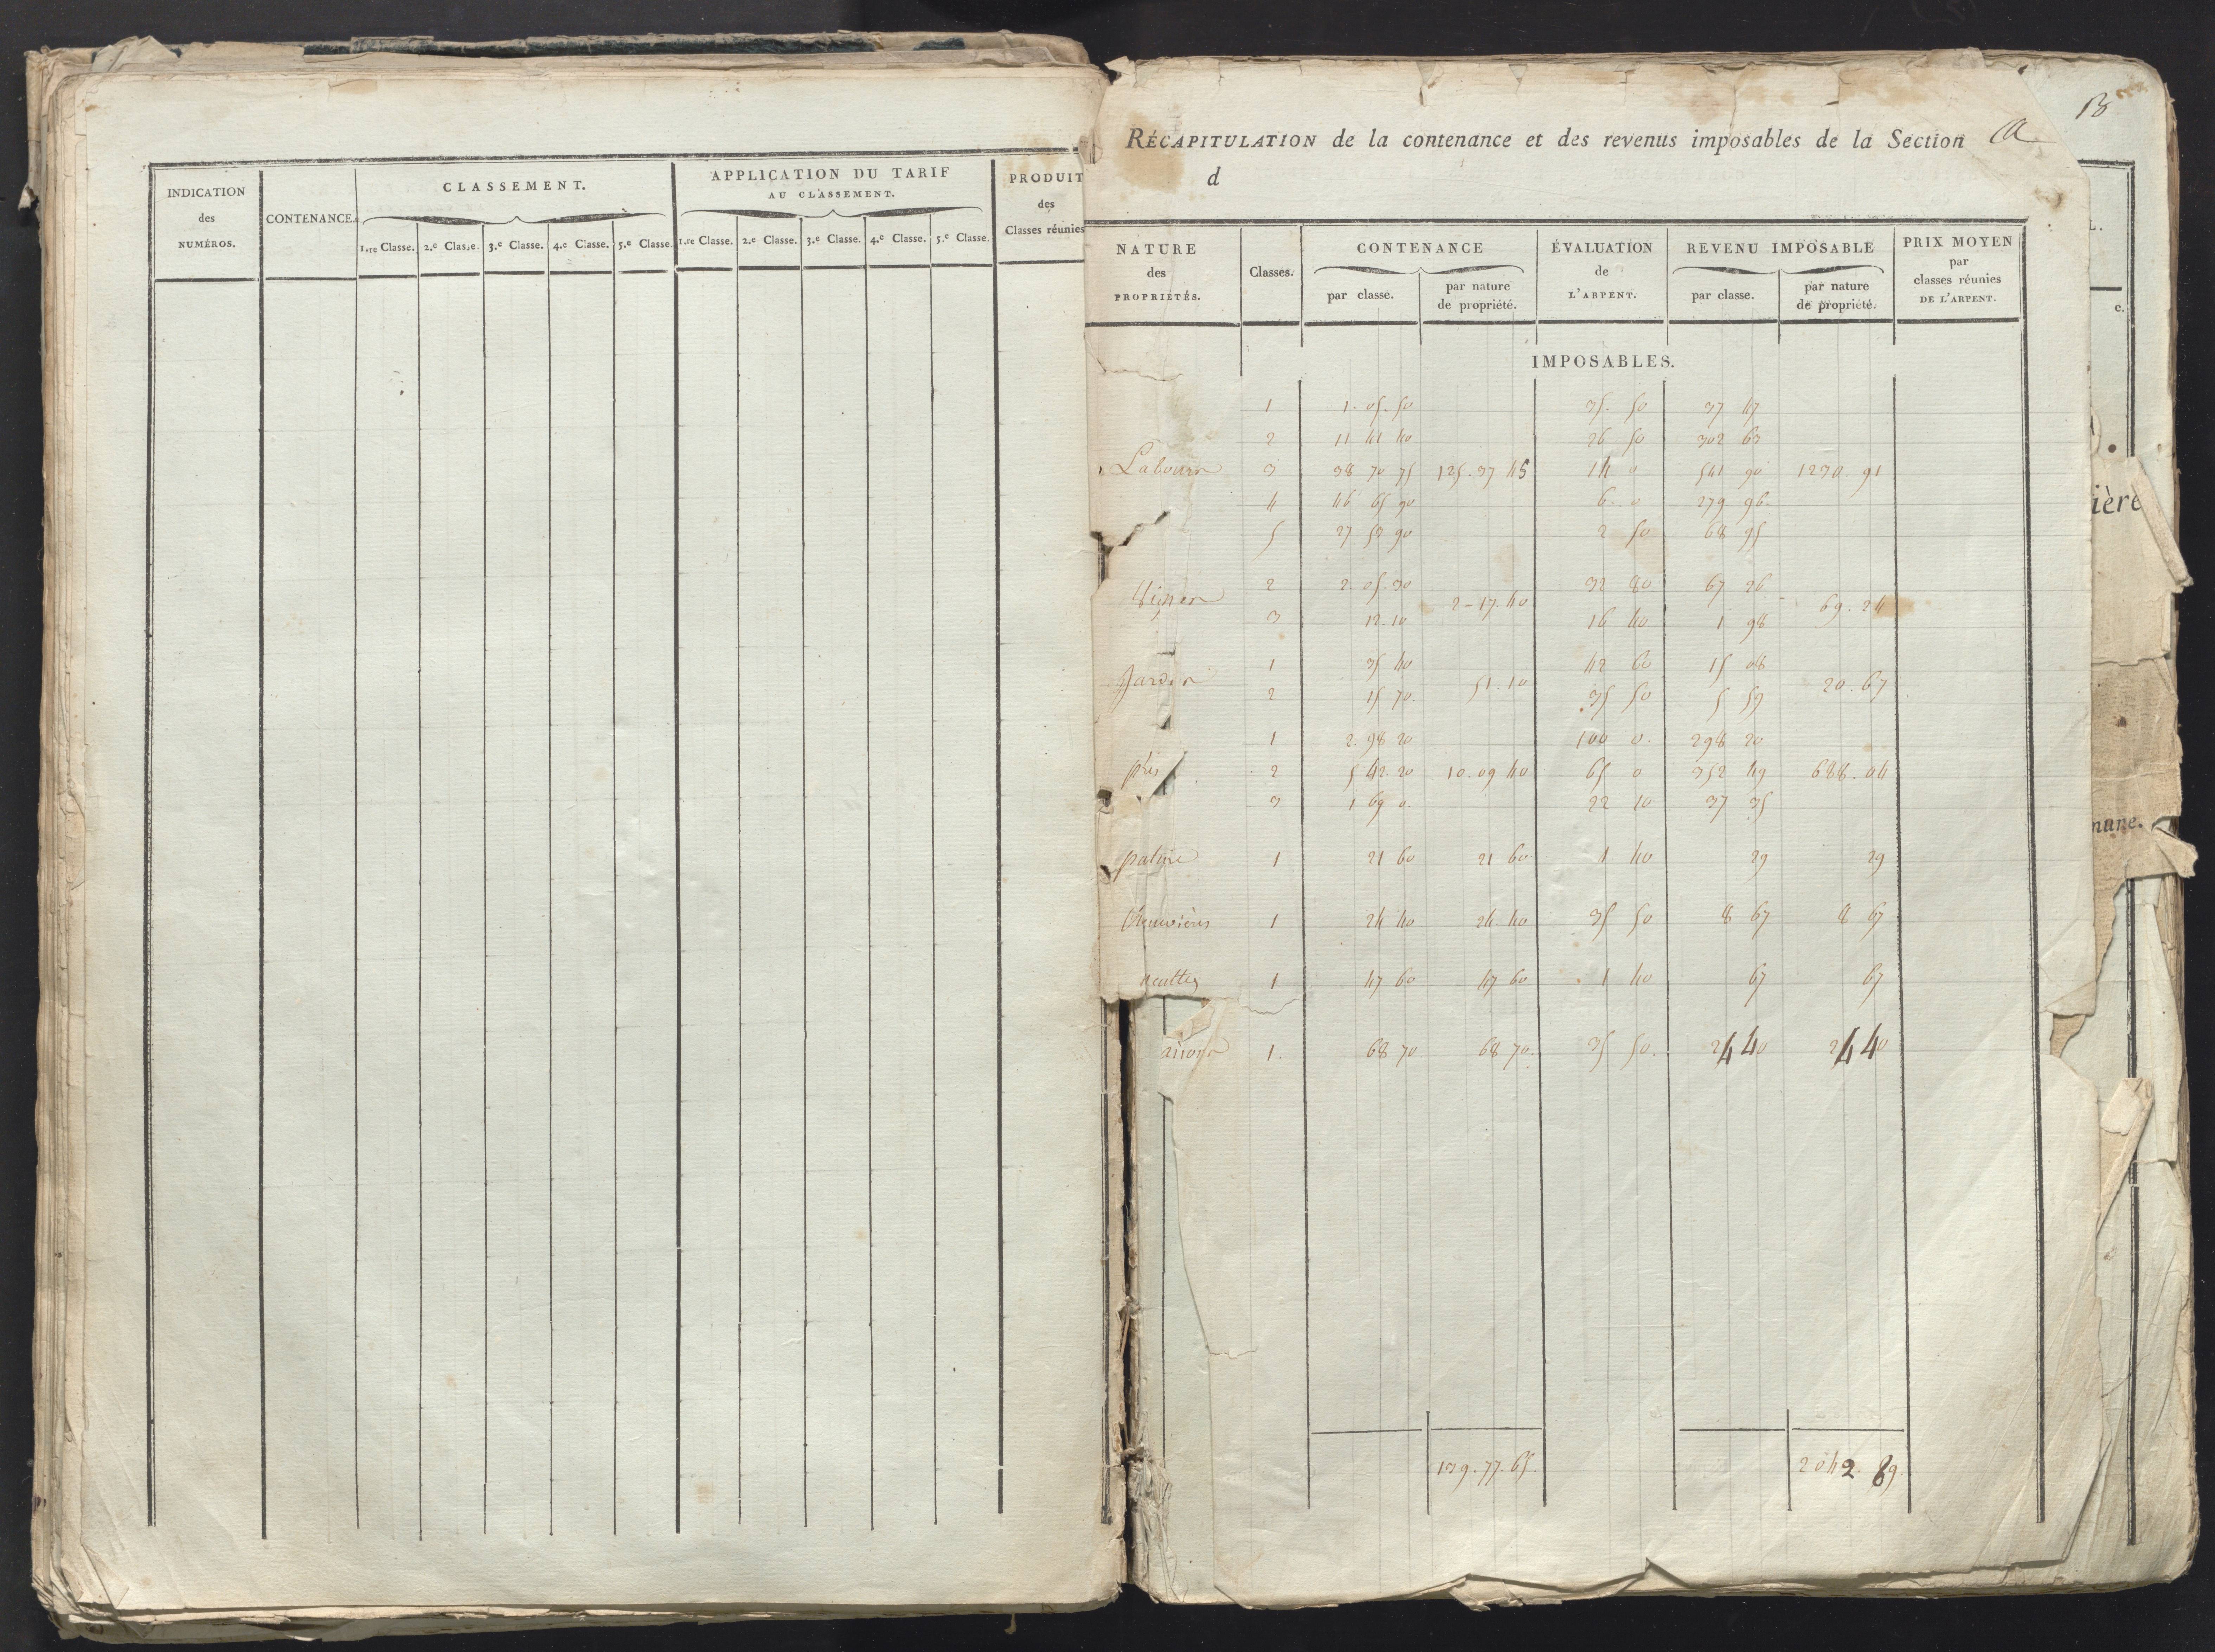 INDICATION
des
NUMÉROS.
CONTENANCE.
CLASSEMENT.
1.re Classe. 2.e Classe. 3.e Classe. 4.e Classe. 5.e Classe.
APPLICATION DU TARIF
AU CLASSEMENT.
1.re Classe. 2.e Classe. 3.e Classe. 4.e Classe. 5.e Classe.
PRODUIT
des
Classes réunies
B
RÉCAPITULATION de la contenance et des revenus imposables de la Section A
d
NATURE
des
PROPRIÉTÉS.
Classes.
CONTENANCE
par classe.
par nature
de propriété.
ÉVALUATION
de
L'ARPENT.
REVENU IMPOSABLE
par classe.
par nature
de propriété.
PRIX MOYEN
par
classes réunies
DE L'ARPENT.
IMPOSABLES.
1 1.05.50 35.50 37 47
2 11 41 40 26 50 302 63
Labours 3 38 70 75 125.37 45 14 0 541 90 1230.91
4 46 65 90 6.0 279 96.
5 27 53 90 2 50 68 95
Vignes 2 2.05.30 2-17.40 32 80 67 26 69.24
3 12.10 16 40 1 98
Jardin 1 35 40 51.10 42 60 15 08 20.67
2 15 70. 35 50 5 59
1 2.98 20 100 0. 298 20
prés 2 5 42.20 10.09 40 65 0 352 49 688.04
3 1 69 0. 22 10 37 35
pature 1 21 60 21 60 1 40 29 29
Chenvières 1 24 40 24.40 35 50 8 67 8 67
1 47 60 47 60 1 40 67 67
aisons 1. 68 70 68 70. 35 50. 24 40 24 40
139.77.65. 2042.89.
L.
c.
ière
mune.